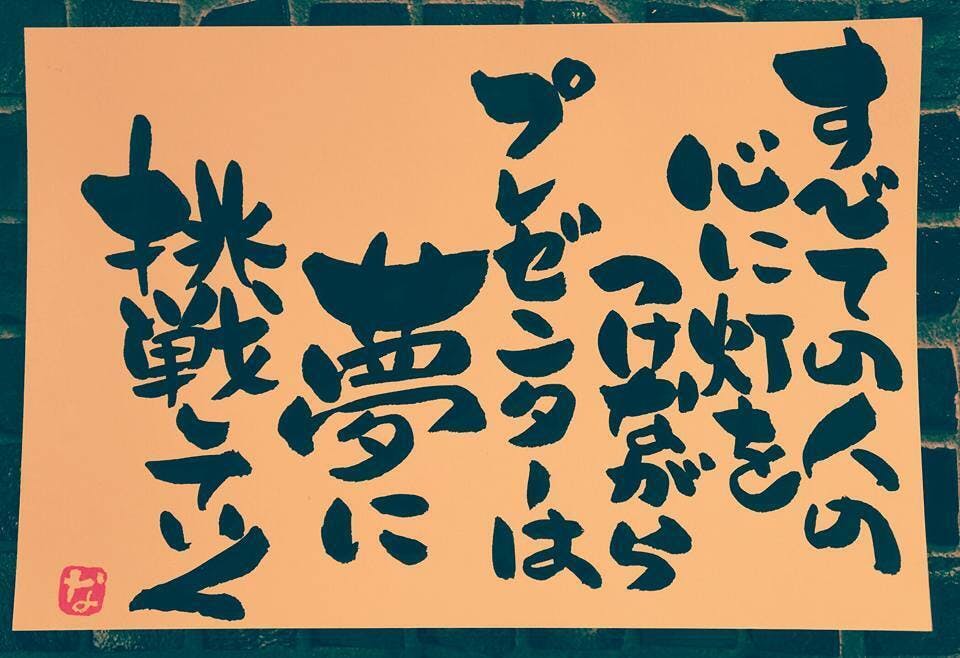 すべての人の
心に灯を
つけながら
プレゼンターは
夢に
挑戦していく
な